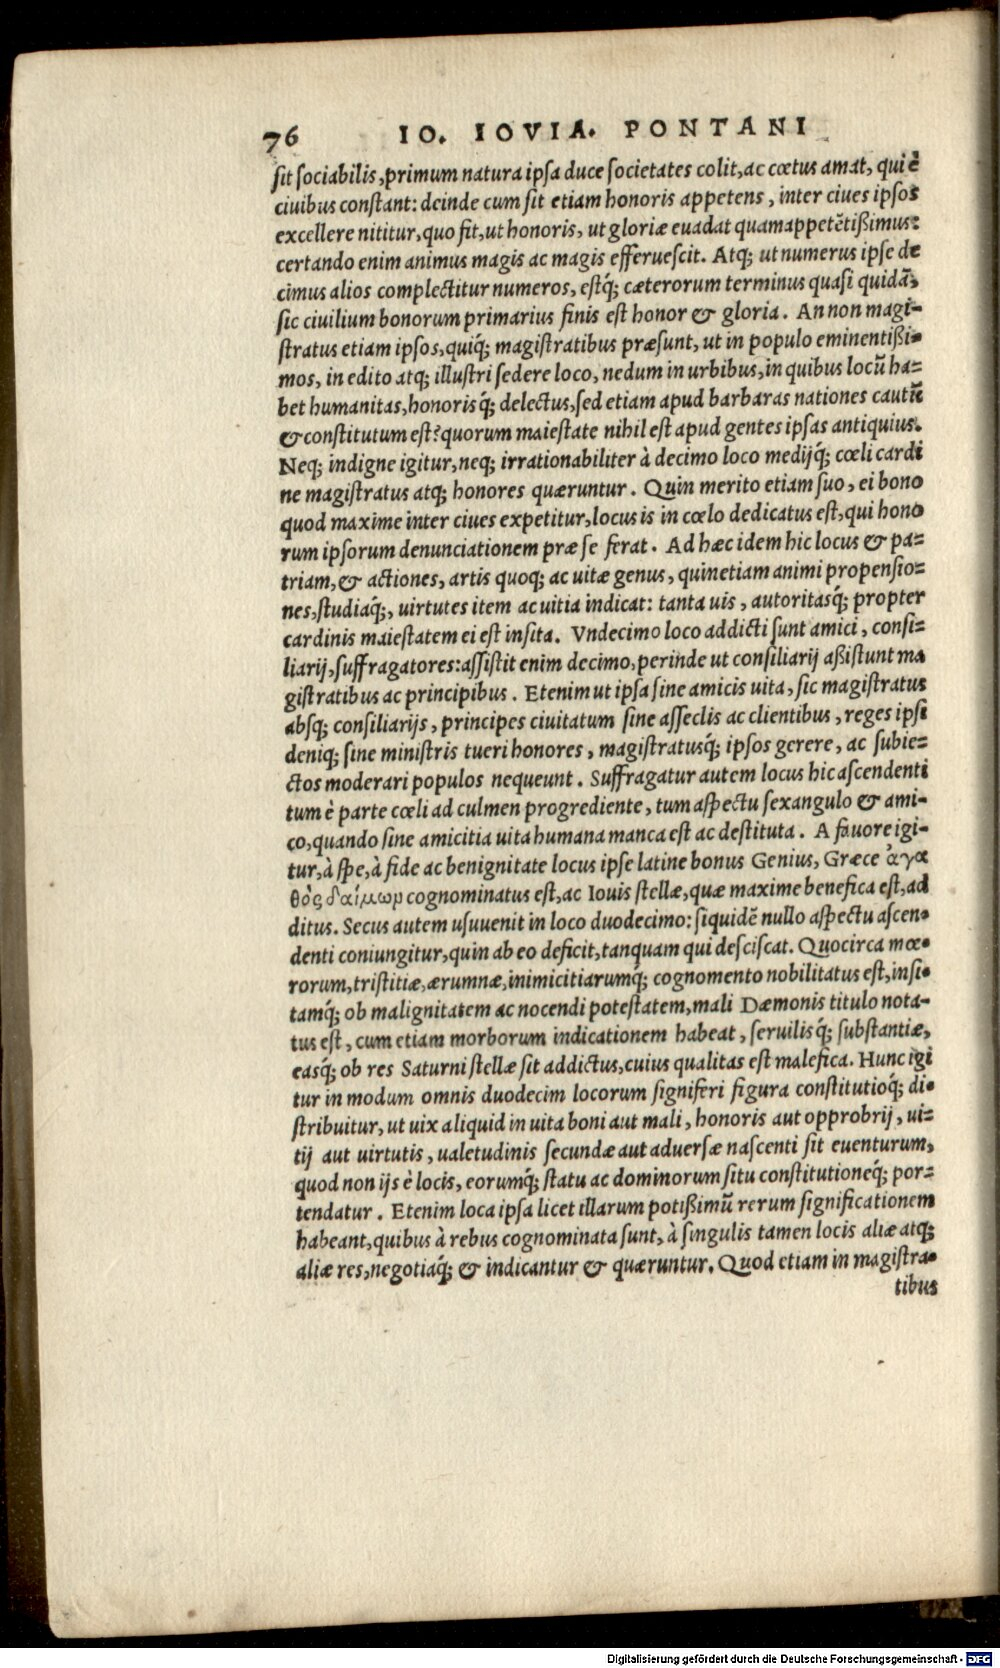 76 IO. IOVIA. PONTANI
sit sociabilis, primum natura ipsa duce societates colit, ac cœtus amat, qui è
ciuibus constant: deinde cum sit etiam honoris appetens, inter ciues ipsos
excellere nititur, quo fit, ut honoris, ut gloriæ euadat quamappetẽtißimus:
certando enim animus magis ac magis efferuescit. Atq; ut numerus ipse de
cimus alios complectitur numeros, estq́; cæterorum terminus quasi quidã,
sic ciuilium bonorum primarius finis est honor & gloria. An non magi-
stratus etiam ipsos, quiq́; magistratibus præsunt, ut in populo eminentißi-
mos, in edito atq; illustri sedere loco, nedum in urbibus, in quibus locũ ha-
bet humanitas, honorisq́; delectus, sed etiam apud barbaras nationes cautũ
& constitutum est? quorum maiestate nihil est apud gentes ipsas antiquius.
Neq; indigne igitur, neq; irrationabiliter à decimo loco medijq́; cœli cardi
ne magistratus atq; honores quæruntur. Quin merito etiam suo, ei bono
quod maxime inter ciues expetitur, locus is in cœlo dedicatus est, qui hono
rum ipsorum denunciationem præ se ferat. Ad hæc idem hic locus & pa-
triam, & actiones, artis quoq; ac uitæ genus, quinetiam animi propensio-
nes, studiaq́;, virtutes item ac uitia indicat: tanta uis, autoritasq́; propter
cardinis maiestatem ei est insita. Vndecimo loco addicti sunt amici, consi-
liarij, suffragatores: assistit enim decimo, perinde ut consiliarij aßistunt ma
gistratibus ac principibus. Etenim ut ipsa sine amicis uita, sic magistratus
absq; consiliarijs, principes ciuitatum sine asseclis ac clientibus, reges ipsi
deniq; sine ministris tueri honores, magistratusq́; ipsos gerere, ac subie-
ctos moderari populos nequeunt. Suffragatur autem locus hic ascendenti
tum è parte cœli ad culmen progrediente, tum aspectu sexangulo & ami-
co, quando sine amicitia uita humana manca est ac destituta. A fauore igi-
tur, à spe, à fide ac benignitate locus ipse latine bonus Genius, Græce ἀγα
θὸς δαίμωρ cognominatus est, ac Iouis stellæ, quæ maxime benefica est, ad
ditus. Secus autem usuuenit in loco duodecimo: siquidẽ nullo aspectu ascen-
denti coniungitur, quin ab eo deficit, tanquam qui desciscat. Quocirca mœ-
rorum, tristitiæ, ærumnæ, inimicitiarumq́; cognomento nobilitatus est, insi-
tamq́; ob malignitatem ac nocendi potestatem, mali Dæmonis titulo nota-
tus est, cum etiam morborum indicationem habeat, seruilisq́; substantiæ,
easq́; ob res Saturni stellæ sit addictus, cuius qualitas est malefica. Hunc igi
tur in modum omnis duodecim locorum signiferi figura constitutioq́; di-
stribuitur, ut uix aliquid in uita boni aut mali, honoris aut opprobrij, ui-
tij aut virtutis, ualetudinis secundæ aut aduersæ nascenti sit euenturum,
quod non ijs è locis, eorumq́; statu ac dominorum situ constitutioneq́; por-
tendatur. Etenim loca ipsa licet illarum potißimũ rerum significationem
habeant, quibus à rebus cognominata sunt, à singulis tamen locis aliæ atq;
aliæ res, negotiaq́; & indicantur & quæruntur. Quod etiam in magistra-
tibus
Digitalisierung gefördert durch die Deutsche Forschungsgemeinschaft - DFG